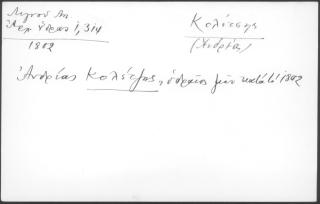 Λιγνοῦ Ἀν.
Ἀρχ. Ὕδρας Ι, 314
1802
Κολέτσης
(Ἀνδρέας)
Ἀνδρέας Κολέτζης, ὑδραῖος μὲν κατὰ τὸ 1802